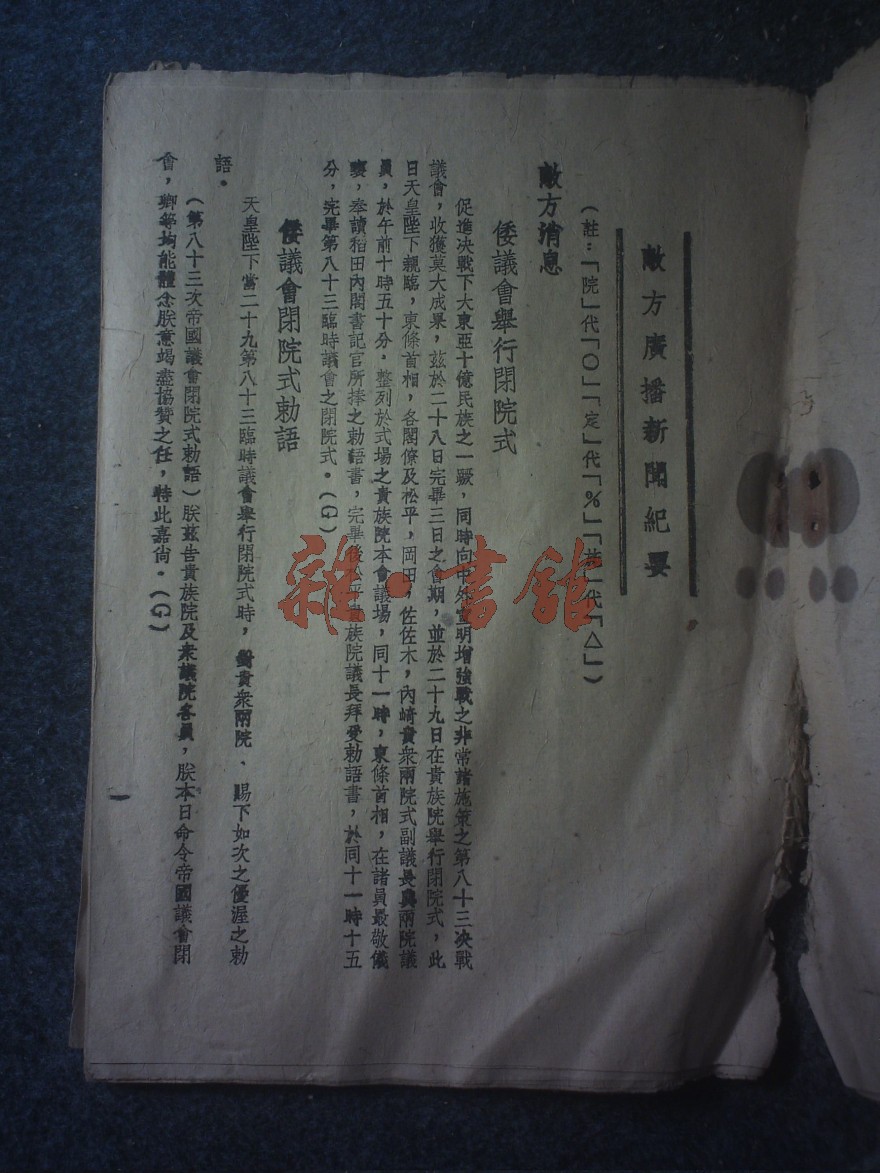 敵方廣播新聞紀要
(註：「院」代「○」「定」代「％」「 」代「△」)
敵方消息
倭議會舉行閉院式
促進決戰下大東亞十億民族之一蹶，同時向中外宣明增強戰之非常諸施策之第八十三次戰
議會，收獲莫大成果，茲於二十八日完畢三日之會期，並於二十九日在貴族院舉行閉院式，此
日天皇陛下親臨，東條首相，各閣僚及松平，岡田，佐佐木，內崎貴衆兩院式副議長與兩院議
員，於午前十時五十分，整列於式場之貴族院本會議場，同十一時，東條首相，在諸員最敬儀
裏，奉讀稻田內閣書記官所捧之勅語書，完畢後松平貴族院議長拜受勅語書，於同十一時十五
分，完畢第八十三臨時議會之閉院式。(G)
倭議會閉院式勅語
天皇陛下當二十九第八十三臨時議會舉行閉院式時，對貴衆兩院、賜下如次之優渥之勅
語。
(第八十三次帝國議會閉院式勅語)朕茲告貴族院及衆議院各員，朕本日命令帝國議會閉
會，卿等均能體念朕意竭盡協贊之任，特此嘉尚。(G)
一
雜·書館